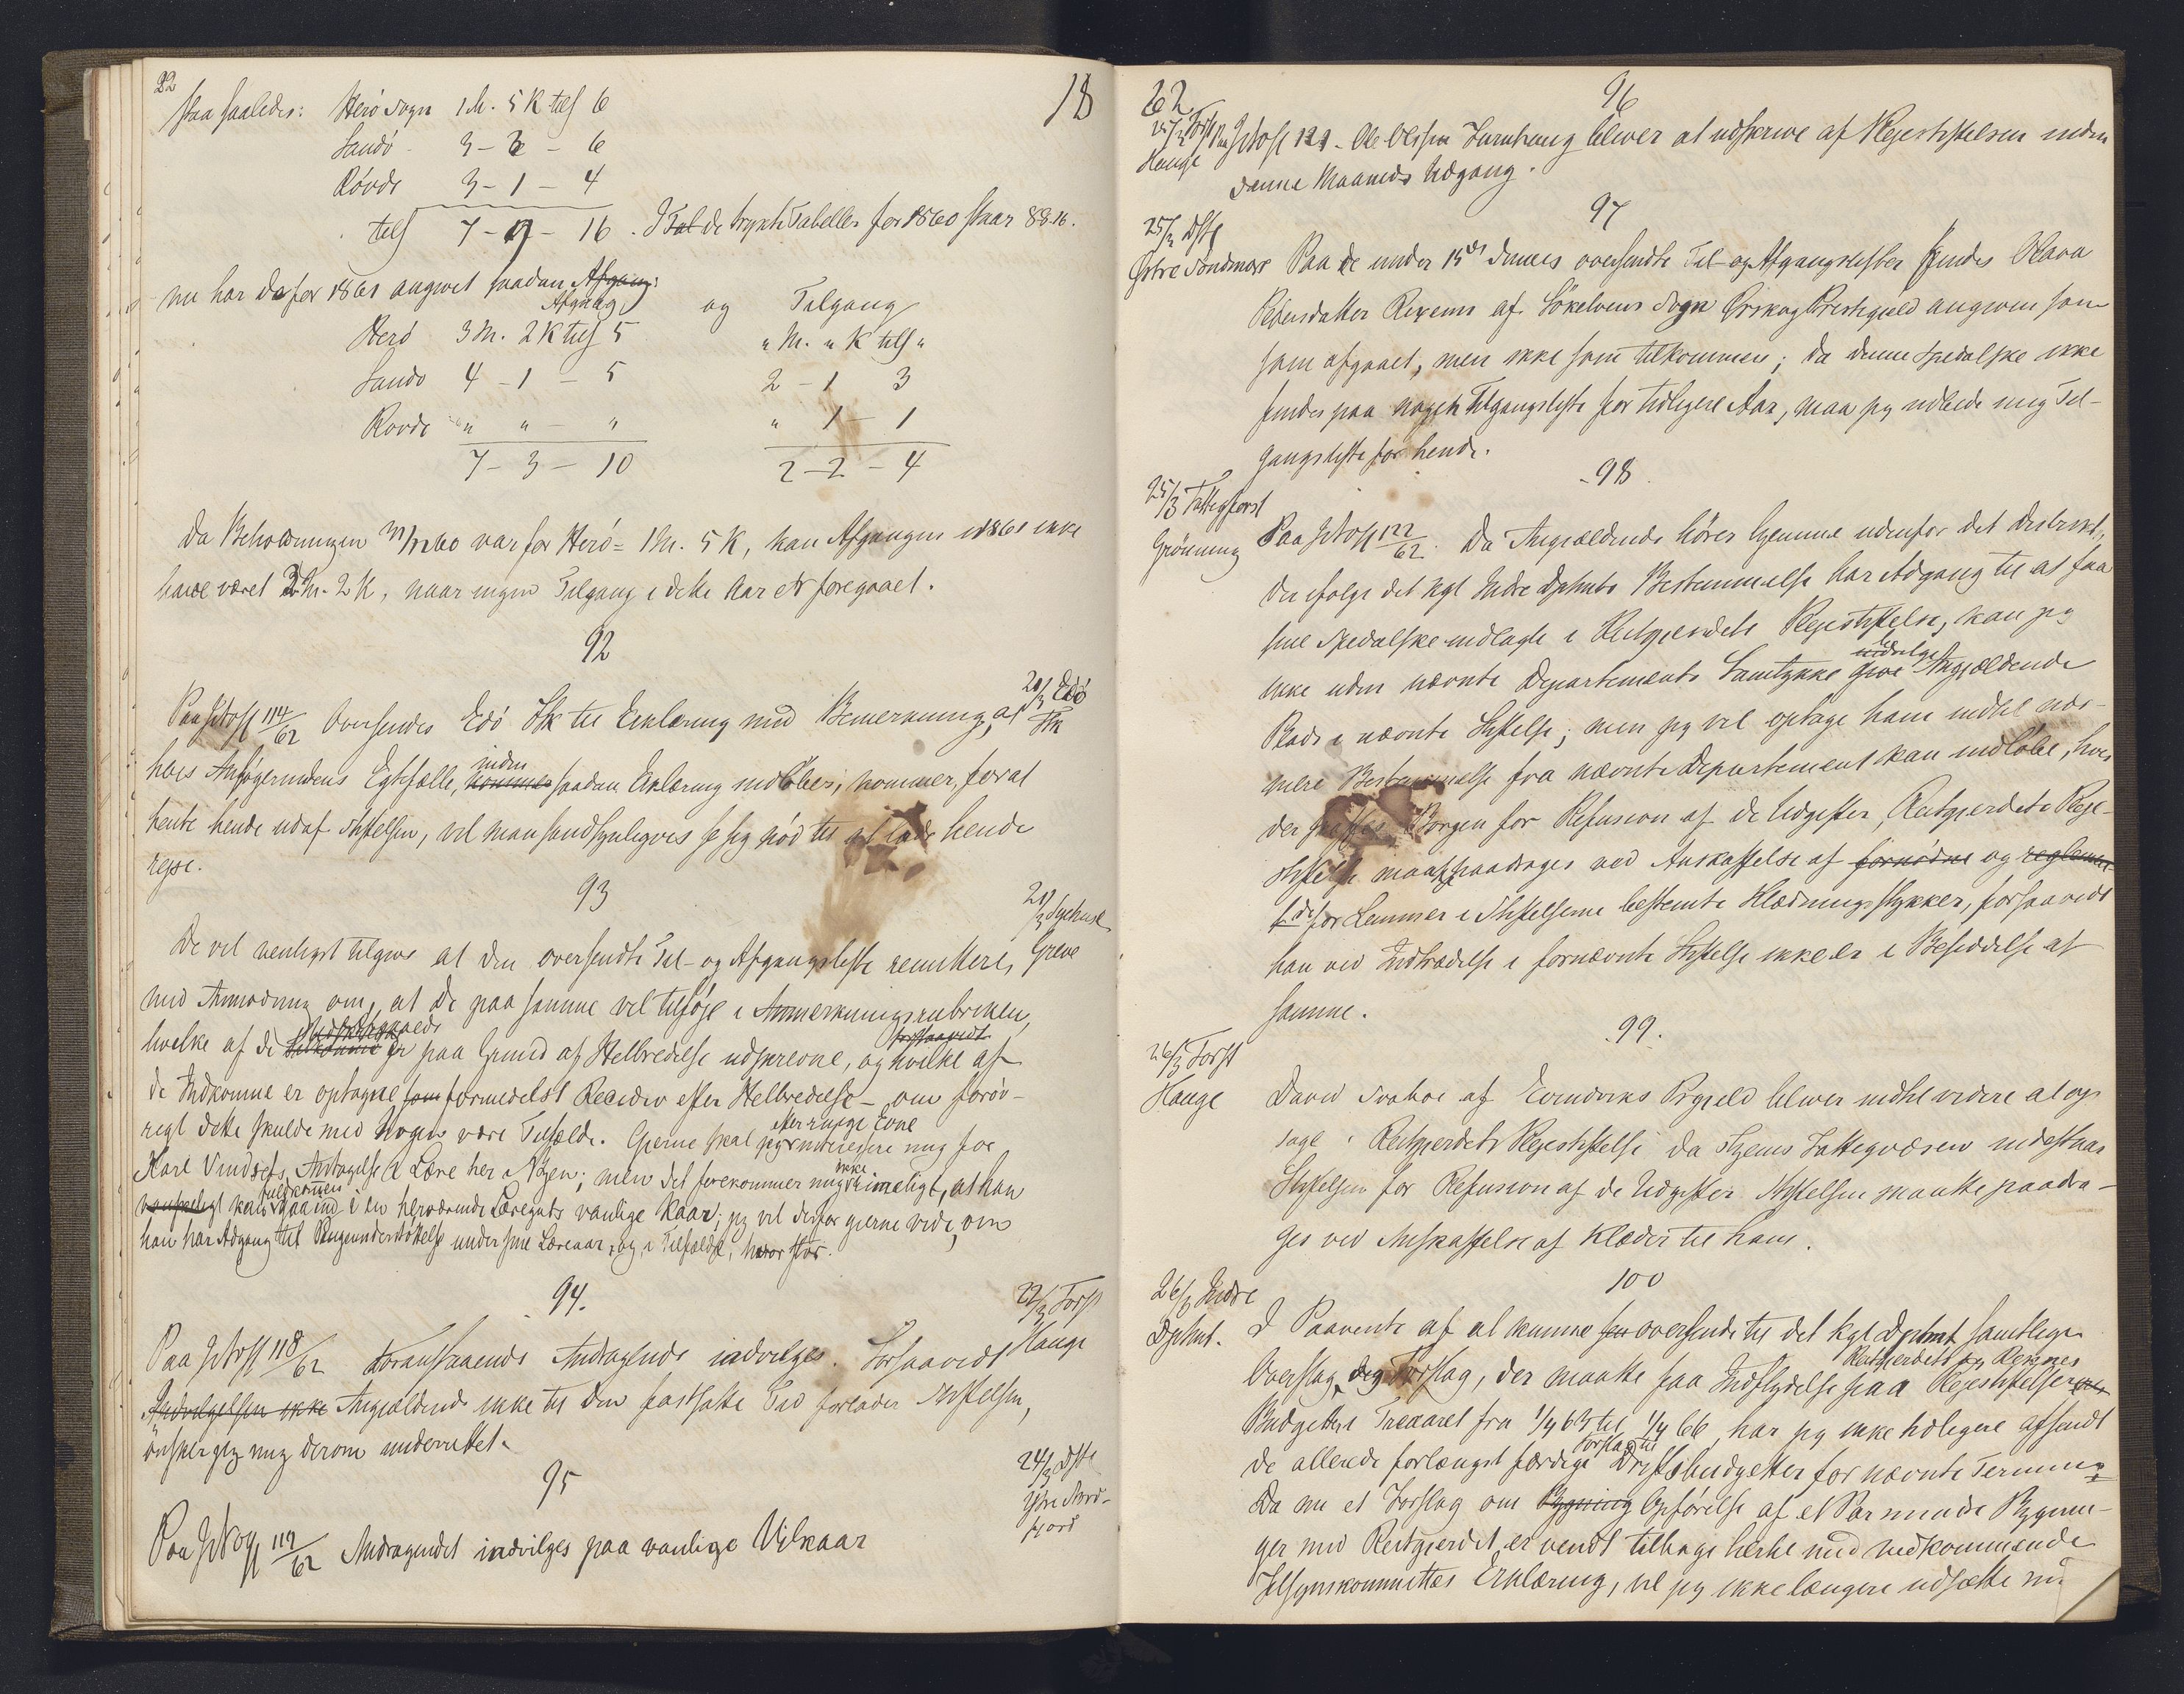 22
18
staa saaledes: Herö Sogn 1 M. 5 K tils 6
Sandö 3 - 3 - 6
Rövde 3 - 1 - 4
tils 7 - 9 - 16. I Tal de trykte Tabeller for 1860 staar 8.8.16.
nu har De for 1861 angivet saadan Afgang:
Afgang og Tilgang
Herö 3 M. 2 K tils 5 " M. " K tils "
Sandö 4 - 1 - 5 2 - 1 3
Rövde " " - " " 1 - 1
7 - 3 - 10 2 - 2 - 4
Da Beholdningen 31/12 60 var for Herö = 1 M. 5 K, kan Afgangen i 1861 ikke
have været 3 M. 2 K, naar ingen Tilgang i dette Aar er foregaaet.
92
21/3 Edö
Fk
Paa JNo 114/62 Oversendes Edö Fk til Erklæring med Bemerkning, at
hvis Ansögerindens Egtefælle, kommer inden saadan Erklæring indløber, kommer, for at
hente hende ud af Stiftelsen, vil man sandsynligvis se sig nød til at lade hende
rejse.
93
21/3 Sygehuset
Greve
De vil venligst tilgive at den oversendte Til- og Afgangsliste remitteres,
med Anmodning om, at De paa samme vil tilføje i Anmerkningsrubriken,
hvilke af de tilkomne Udskrevne er paa Grund af Helbredelse udskrevne, og forsaavidt hvilke af
de Indkomne er optagne som formedelst Recidiv efter Helbredelse - om forøv-
rigt dette skulde med Nogen være Tilfælde. Gjerne skal jeg efter ringe Evne interessere mig for
Karl Vindsets Antagelse i Lære her i Byen; men det forekommer mig ikke rimeligt, at han
vanskeligt kan fuldkommen gaa ind i en herværende Læreguts vanlige Kaar; jeg vil derfor gjerne vide, om
han har Adgang til Pengeunderstøttelse under sine Læreaar, og i Tilfælde, hvor stor.
94.
22/3 Forst
Hauge
Paa JNo 118/62 Foranstaaende Andragende indvilges. Forsaavidt
Indvilgelsen ikke Angjældende ikke til den fastsatte Tid forlader Stiftelsen,
ønsker jeg mig derom underrettet.
95
24/3 Dstl
Ytre Nord-
fjord
Paa JNo 119/62 Andragendet indvilges paa vanlige Vilkaar
62
96
25/3 Forst
Hauge
Paa JNo 121 - Ole Olssen Furuhaug bliver at udskrive af Plejestiftelsen inden
denne Maaneds Udgang.
97
25/3 Dstl
Østre Søndmøre
Paa de under 15de dennes oversendte Til- og Afgangslister findes Olava
Pedersdatter Rexem af Sökelvens Sogn Ørskog Prestegjeld angiven som
som afgaaet, men ikke som tilkommen; da denne Spedalske ikke
findes paa nogen Tilgangsliste for tidligere Aar, maa jeg udbede mig Til-
gangsliste for hende.
98
25/3 Fattigforst
Grönning
Paa JNo 122/62. Da Angjældende hører hjemme udenfor det Distrikt,
der ifølge det kgl Indre Dptmts Bestemmelse har Adgang til at faa
sine Spedalske indlagte i Reitgjerdets Plejestiftelse, kan jeg
ikke uden nævnte Departements Samtykke give indvilge Angjældende
Plads i nævnte Stiftelse; men jeg vil optage ham indtil nær-
mere Bestemmelse fra nævnte Departement kan indløbe, hvis
der stilles Borgen for Refusion af de Udgifter, Reitgjerdets Pleje-
Stiftelse maatte paadrages ved Anskaffelse af fornødne og reglemen-
t de for Lemmer i Stiftelserne bestemte Klædningsstykker, forsaavidt
han ved Indtrædelse i fornævnte Stiftelse ikke er i Besiddelse af
samme.
99.
26/3 Forst
Hauge
David Svaboe af Evindviks Prgjeld bliver indtil videre at op
tage i Reitgjerdets Plejestiftelse da Hjems Fattigvæsen indestaar
Stiftelsen for Refusion af de Udgifter Stiftelsen maatte paadra-
ges ved Anskaffelse af Klæder til ham.
100
26/3 Indre
Dptmt.
I Paavente af at kunne faa oversende til det kgl Dptmt samtlige
Overslag og Forslag, der maatte faa Indflydelse paa Reitgjerdets og Reknes Plejestiftelsernes
Budgetter i Treaaret fra 1/4 63 til 1/4 66, har jeg ikke tidligere afsendt
de allerede forlængst færdige Forslag til Driftsbudgetter for nævnte Termin
Da nu et Forslag om Bygning Opförelse af et Par mindre Bygnin-
ger ved Reitgjerdet, er vendt tilbage hertil med vedkommende
Tilsynskommittes Erklæring, vil jeg ikke længere udsætte med